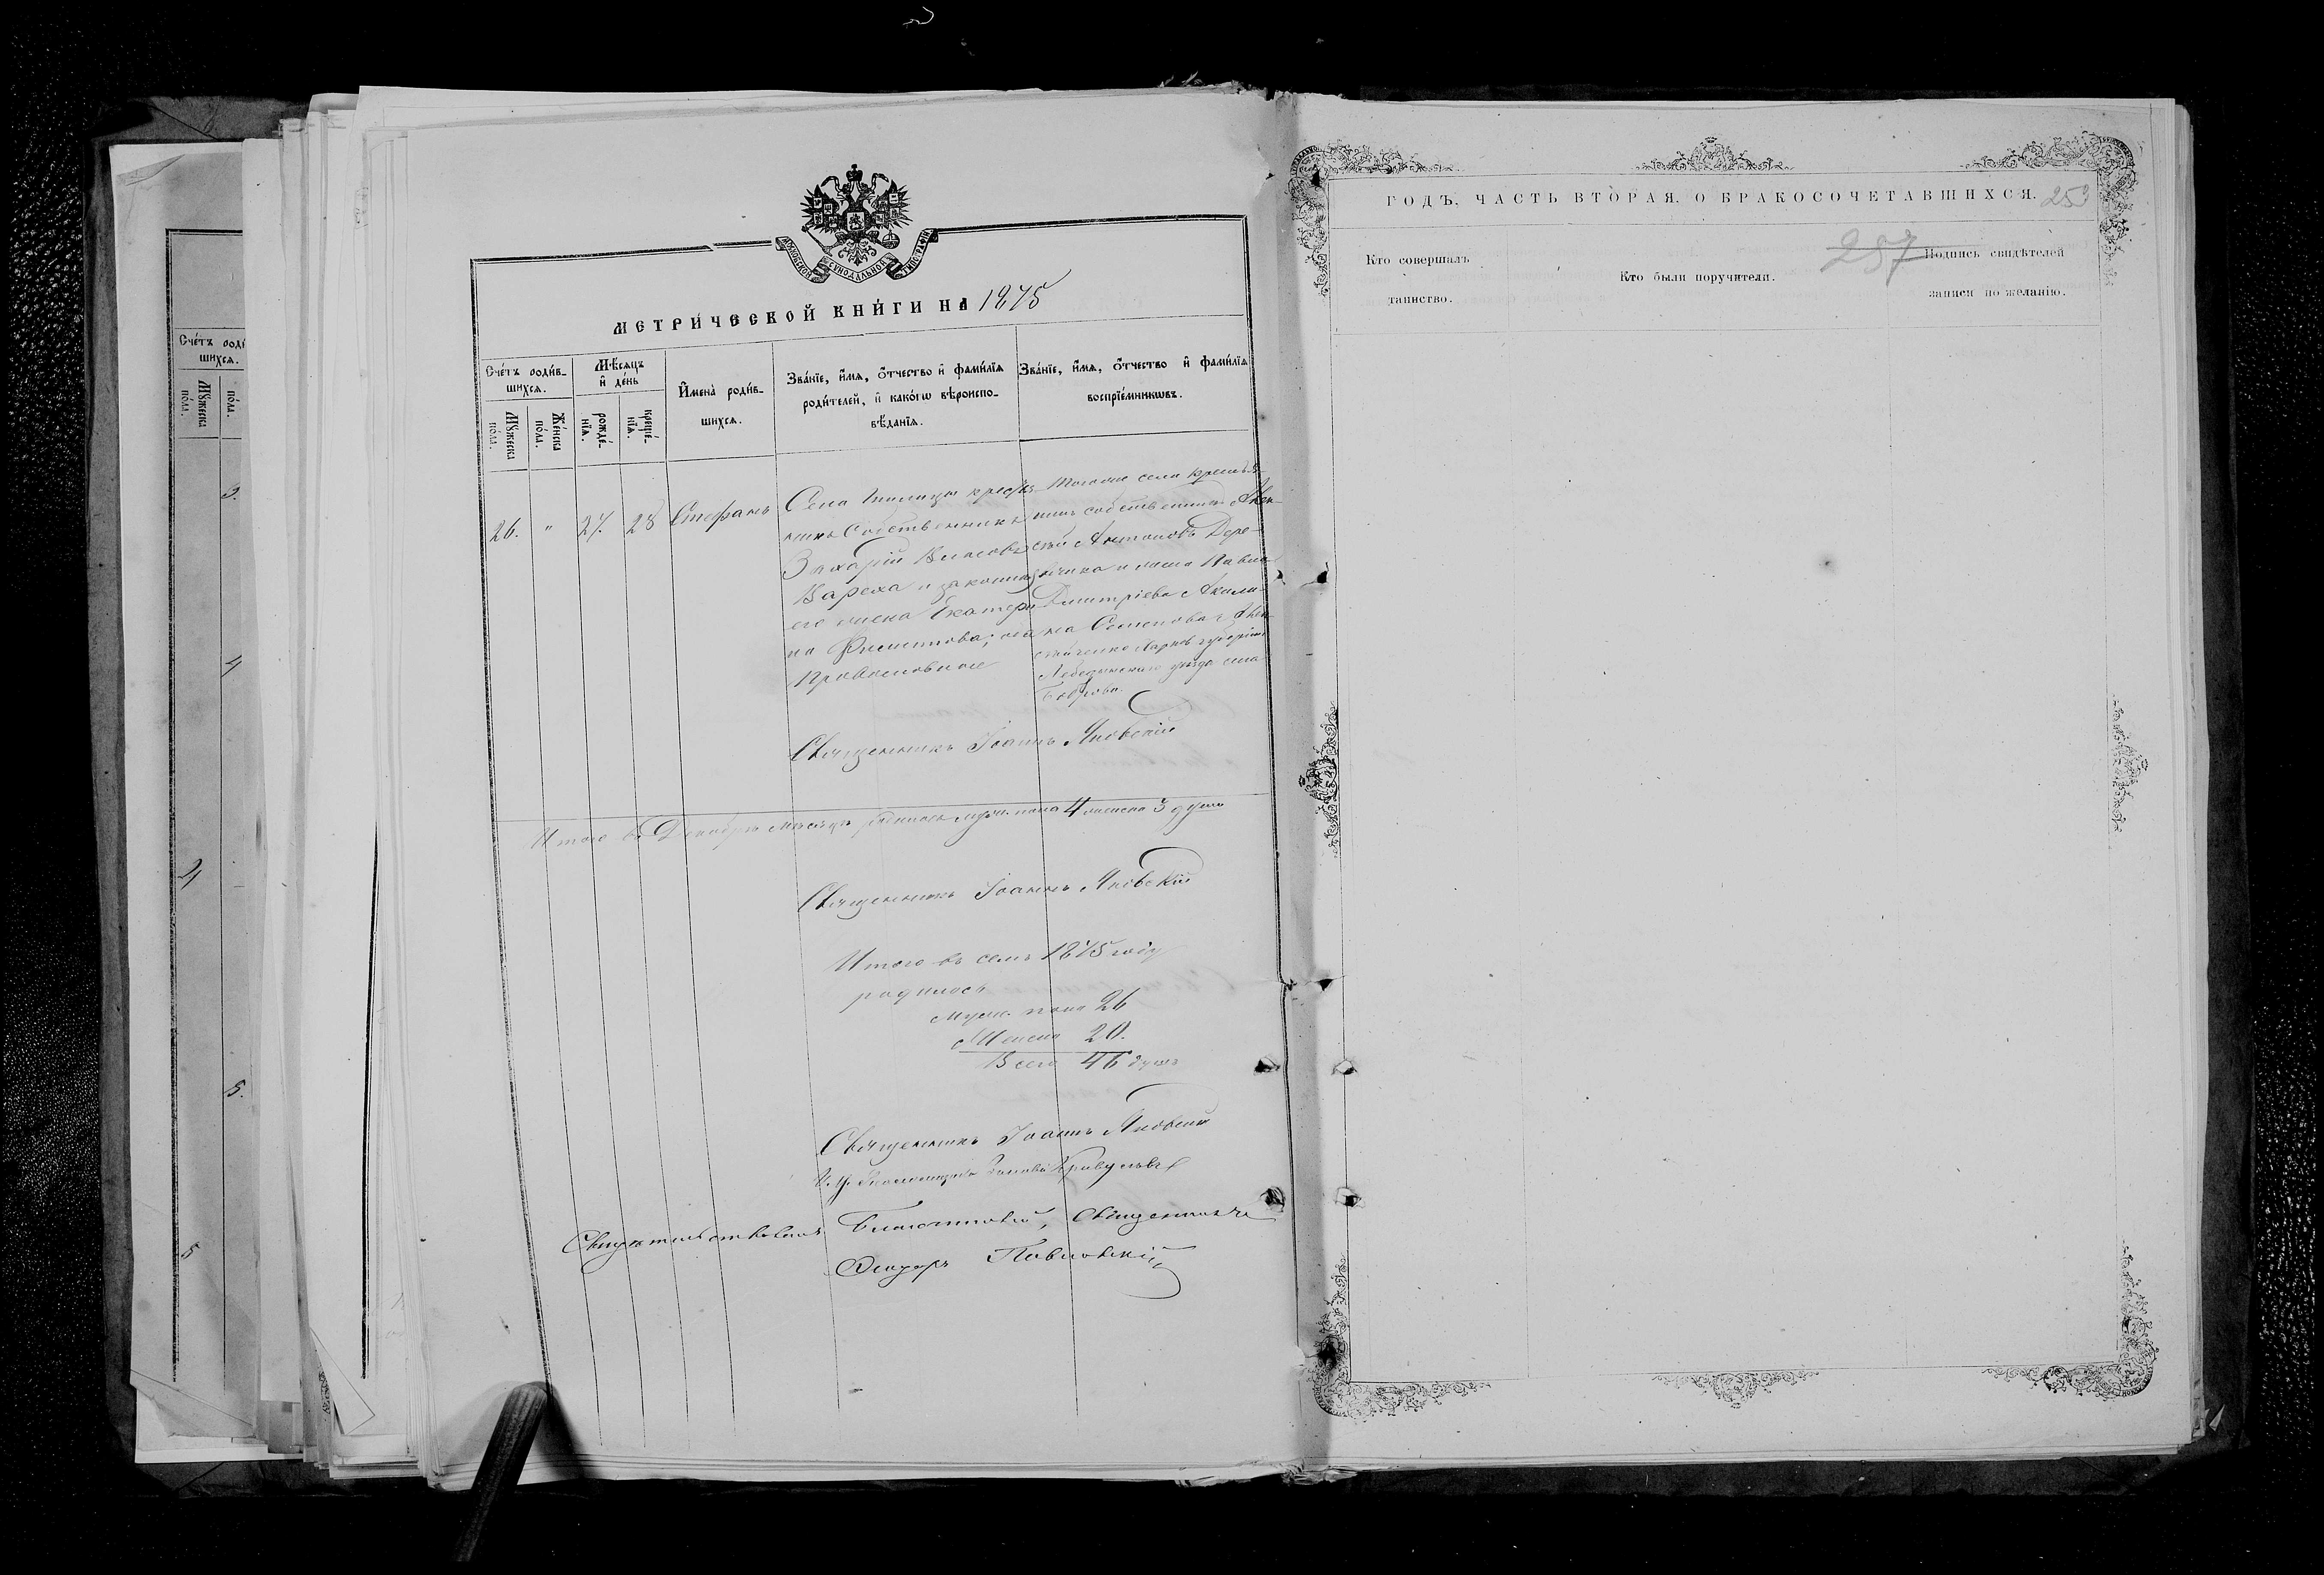 МОСКОВСКОЙ СѴНОДАЛЬНОЙ ТИПОГРАФІИ
МЕТРИ́ЧЕСКОЙ КНИ́ГИ НА 1875
Сче́тъ роди́в-
шихсѧ.
Мꙋ́жеска по́ла.
Же́нска по́ла.
Мѣ́сѧцъ
и҆ де́нь
рожде́-
нїѧ.
креще́-
нїѧ.
И҆мена̀ роди́в-
шихсѧ.
Зва́нїе, и҆́мѧ, ѻ҆́тчество и҆ фами́лїѧ
роди́телей, и҆ како́гѡ вѣроиспо-
вѣ́данїѧ.
Зва́нїе, и҆́мѧ, ѻ҆́тчество и҆ фами́лїѧ
воспрїе́мникѡвъ.
26. " 27. 28 Стефанъ
Села кресть-
янинъ Собственникъ
Захарій Власовъ
Вареха и законная
его жена Екатери-
на Филиппова; оба
православные
Тогоже села крестья-
нинъ собственникъ
Антоновъ Дере-
и жена Павла
Дмитріева Акили-
на Семенова
Харьк губерніи
Лебединскаго уѣзда села
Боброва.
Священникъ Іоаннъ Яновскій
Итого въ Декабрѣ мѣсяцѣ родилось муж. пола 4 женска 3 душъ
Священникъ Іоаннъ Яновскій
Итого въ семъ 1875 году
родилось
Муж. пола 26
Женска 20.
Всего 46 душъ
Священникъ Іоаннъ Яновскій
И. д. Псаломщика
Свидѣтельствовалъ Благочинный, Священникъ
Ѳеодоръ Павловскій
Сче́тъ роди́
шихсѧ.
Мꙋ́жеска по́ла.
по́ла.
3.
4
4
5.
5
ГОДЪ, ЧАСТЬ ВТОРАЯ, О БРАКОСОЧЕТАВШИХСЯ. 253
257
Кто совершалъ
таинство.
Кто были поручители.
Подпись свидѣтелей
записи по желанію.